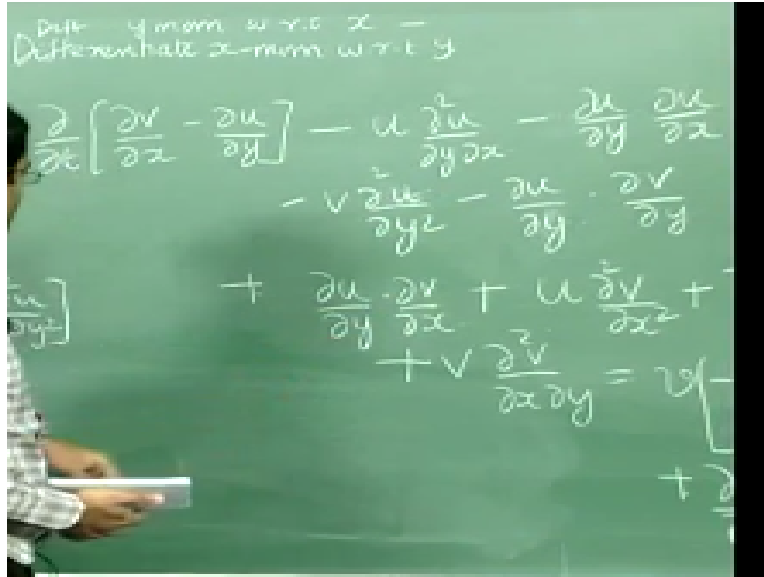 Diff y mom w r.t x –
Differentiate x-mom w r t y
∂/∂t [∂v/∂x - ∂u/∂y] - u ∂²u/∂y∂x - ∂u/∂y ∂u/∂x
- v ∂²u/∂y² - ∂u/∂y · ∂v/∂y
+ ∂u/∂y · ∂v/∂x + u ∂²v/∂x² +
+ v ∂²v/∂x∂y = ν[-
+ ∂
u/∂y²]